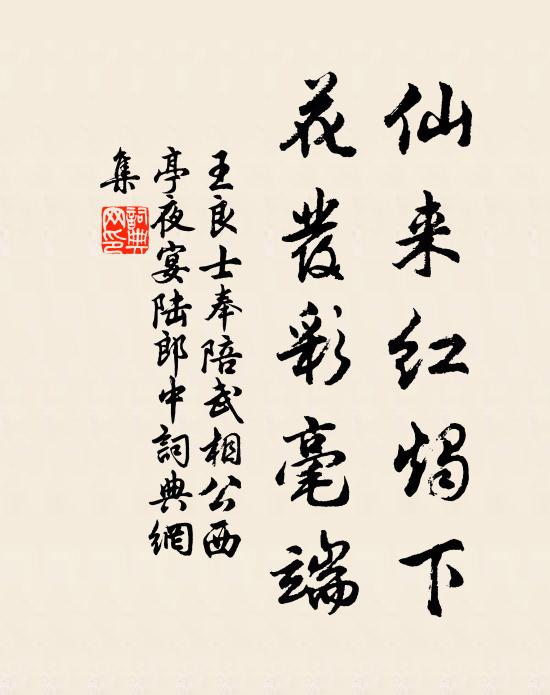 仙来红烛下
花發彩毫端
王良士奉陪武相公西
亭夜宴陆郎中詞典網
集
詞典
网印